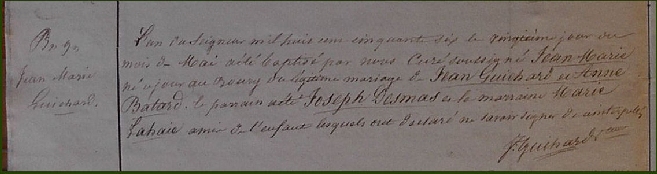 Bp 9e
Jean Marie
Guichard.
L'an du Seigneur mil huit cent cinquante six le vingtième jour du
mois de Mai a été baptisé par nous Curé soussigné Jean-Marie
né ce jour au Bourg du légitime mariage de Jean Guichard et Anne
Batard. Le parrain a été Joseph Desmas et la marraine Marie
Lahaie amie de l'enfant lesquels ont déclaré ne savoir signer de ce interpellés
J. Guihard